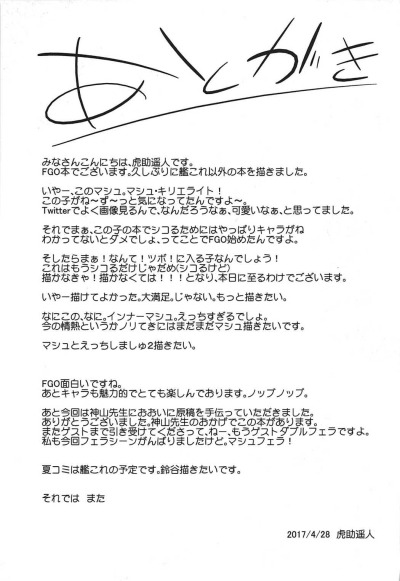 あとがき
みなさんこんにちは、虎助遥人です。
FGO本でございます。久しぶりに艦これ以外の本を描きました。
いやー、このマシュ。マシュ・キリエライト!
この子がね~ず~っと気になってたんですよ~。
Twitterでよく画像見るんで、なんだろうなぁ、可愛いなぁ、と思ってました。
それでまぁ、この子の本でシコるためにはやっぱりキャラがね
わかってないとダメでしょ、ってことでFGO始めたんですよ。
そしたらまぁ!なんて!ツボ!に入る子なんでしょう!
これはもうシコるだけじゃだめ(シコるけど)
描かなきゃ!描かなくては!!!となり、本日に至るわけでございます。
いやー描けてよかった。大満足。じゃない。もっと描きたい。
なにこの、なに。インナーマシュ。えっちすぎるでしょ。
今の情熱というかノリてきにはまだまだマシュ描きたい。
マシュとえっちしましゅ2描きたい。
FGO面白いですね。
あとキャラも魅力的でとても楽しんでおります。ノッブノッブ。
あと今回は神山先生におおいに原稿を手伝っていただきました。
ありがとうございました。神山先生のおかげでこの本があります。
またゲストまで引き受けてくださって、ねー、もうゲストダブルフェラですよ。
私も今回フェラシーンがんばりましたけど。マシュフェラ!
夏コミは艦これの予定です。鈴谷描きたいです。
それでは また
2017/4/28 虎助遥人